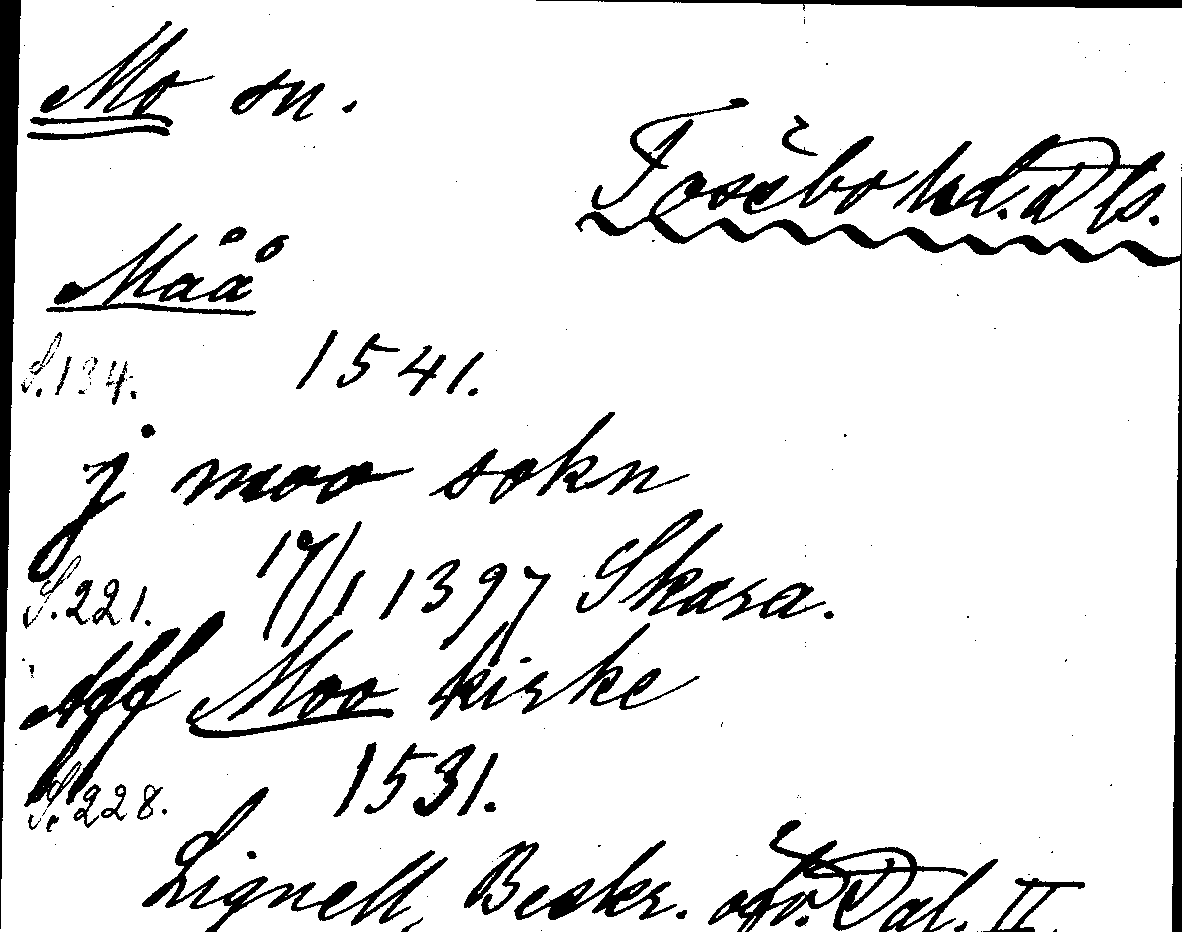 Mo sn.
Tössbo hd. Dls.
Måå
S.134. 1541.
j moo sokn
S.221. 17/1 1397 Skara.
Aff Moo kirke
S.228. 1531.
Lignell, Beskr. öfv. Dal. II.